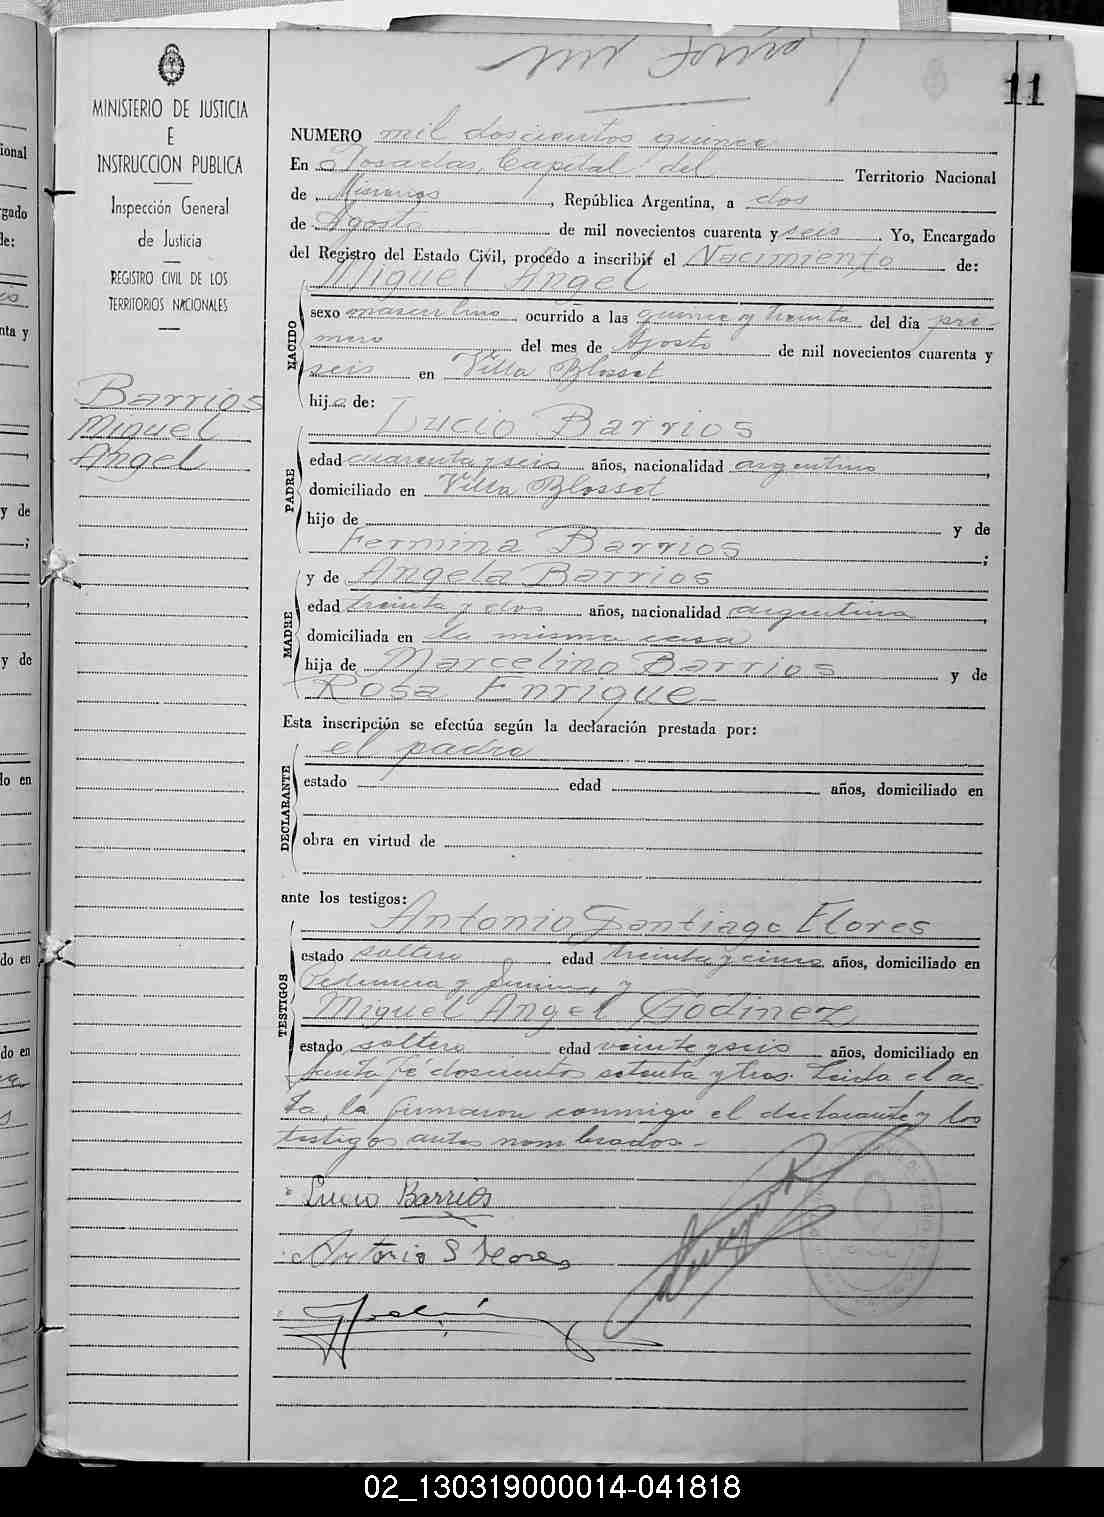 11
MINISTERIO DE JUSTICIA
E
INSTRUCCION PUBLICA
Inspección General
de Justicia
REGISTRO CIVIL DE LOS
TERRITORIOS NACIONALES
Barrios
Miguel
Angel
NUMERO mil doscientos quince
En Posadas, Capital del Territorio Nacional
de Misiones, República Argentina, a dos
de Agosto de mil novecientos cuarenta y seis. Yo, Encargado
del Registro del Estado Civil, procedo a inscribir el Nacimiento de:
Miguel Angel
NACIDO
sexo masculino ocurrido a las quince y treinta del día pri-
mero del mes de Agosto de mil novecientos cuarenta y
seis en Villa Blosset
hijo de:
Lucio Barrios
PADRE
edad cuarenta y seis años, nacionalidad argentino,
domiciliado en Villa Blosset
hijo de y de
Fermina Barrios ;
y de Angela Barrios
MADRE
edad treinta y dos años, nacionalidad argentina,
domiciliada en la misma casa
hija de Marcelino Barrios y de
Rosa Enrique
Esta inscripción se efectúa según la declaración prestada por:
el padre
DECLARANTE
estado edad años, domiciliado en
obra en virtud de
ante los testigos:
Antonio Santiago Flores
TESTIGOS
estado soltero edad treinta y cinco años, domiciliado en
y
Miguel Angel Godinez
estado soltero edad veinte y seis años, domiciliado en
Santa Fé doscientos setenta y tres. Leida el ac-
ta, la firmaron conmigo el declarante y los
testigos antes nombrados.-
Lucio Barrios
Antonio S Flores
02_130319000014-041818